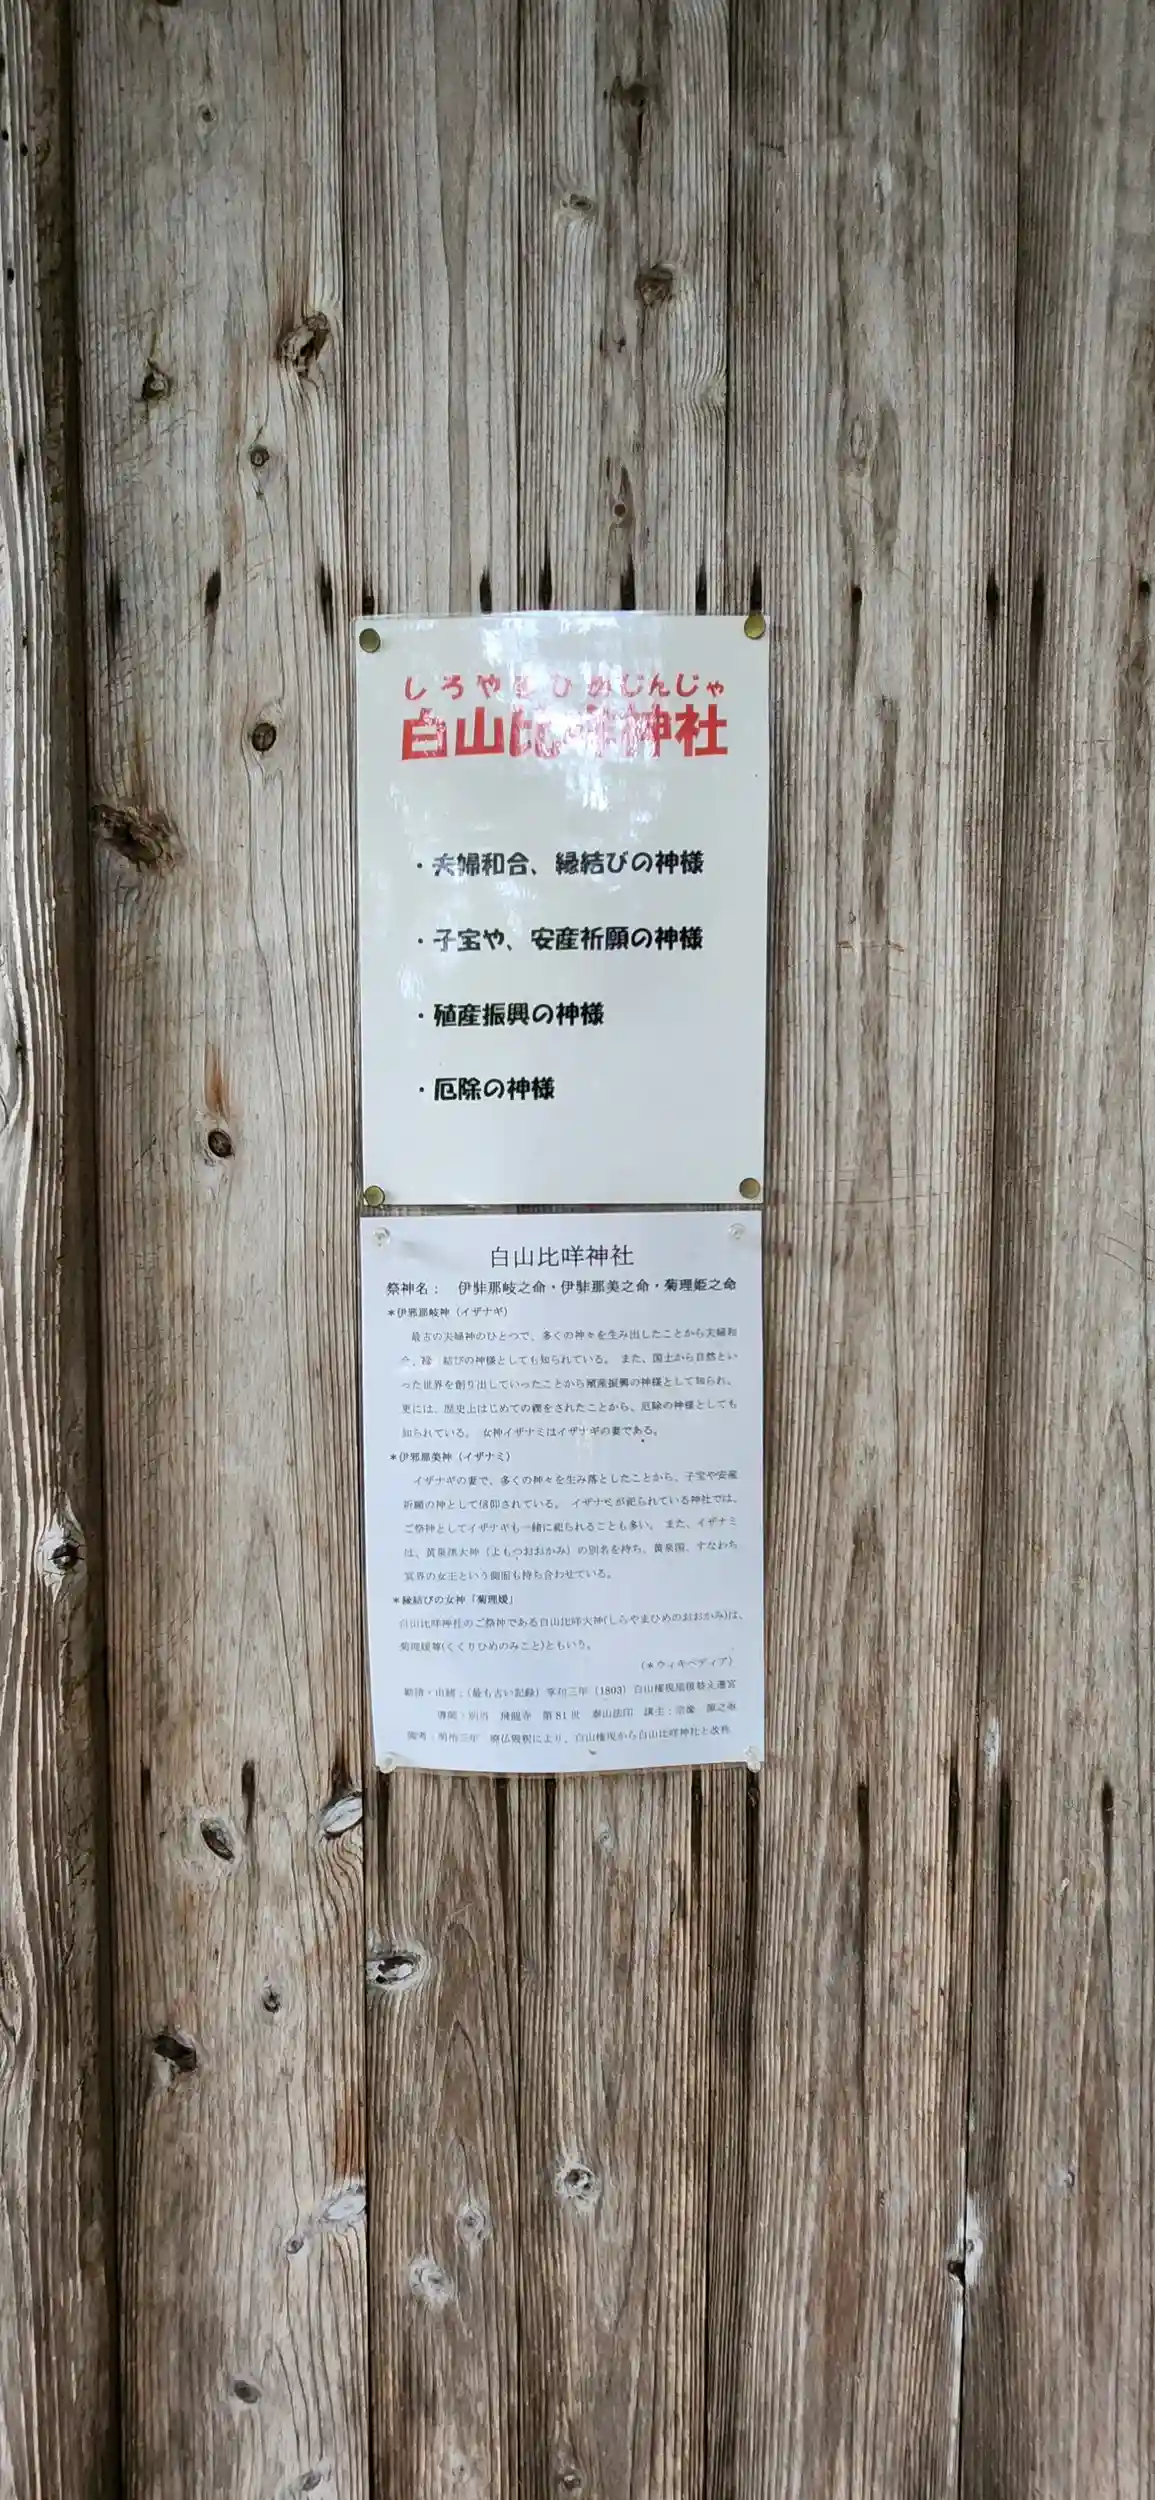 しろやまひめじんじゃ
白山比咩神社
・夫婦和合、縁結びの神様
・子宝や、安産祈願の神様
・殖産振興の神様
・厄除の神様
白山比咩神社
祭神名： 伊弉那岐之命・伊弉那美之命・菊理姫之命
＊伊邪那岐神（イザナギ）
最古の夫婦神のひとつで、多くの神々を生み出したことから夫婦和
合、縁 結びの神様としても知られている。 また、国土から自然とい
った世界を創り出していったことから殖産振興の神様として知られ、
更には、歴史上はじめての禊をされたことから、厄除の神様としても
知られている。 女神イザナミはイザナギの妻である。
＊伊邪那美神（イザナミ）
イザナギの妻で、多くの神々を生み落としたことから、子宝や安産
祈願の神として信仰されている。 イザナミが祀られている神社では、
ご祭神としてイザナギも一緒に祀られることも多い。 また、イザナミ
は、黄泉津大神（よもつおおかみ）の別名を持ち、黄泉国、すなわち
冥界の女王という側面も持ち合わせている。
＊縁結びの女神「菊理媛」
白山比咩神社のご祭神である白山比咩大神(しらやまひめのおおかみ)は、
菊理媛尊(くくりひめのみこと)ともいう。
（＊ウィキペディア）
勧請・由緒：（最も古い記録）享和三年（1803）白山権現屋根替え遷宮
導師：別当 飛龍寺 第81世 泰山法印 講主：宗像
備考：明治三年 廃仏毀釈により、白山権現から白山比咩神社と改称